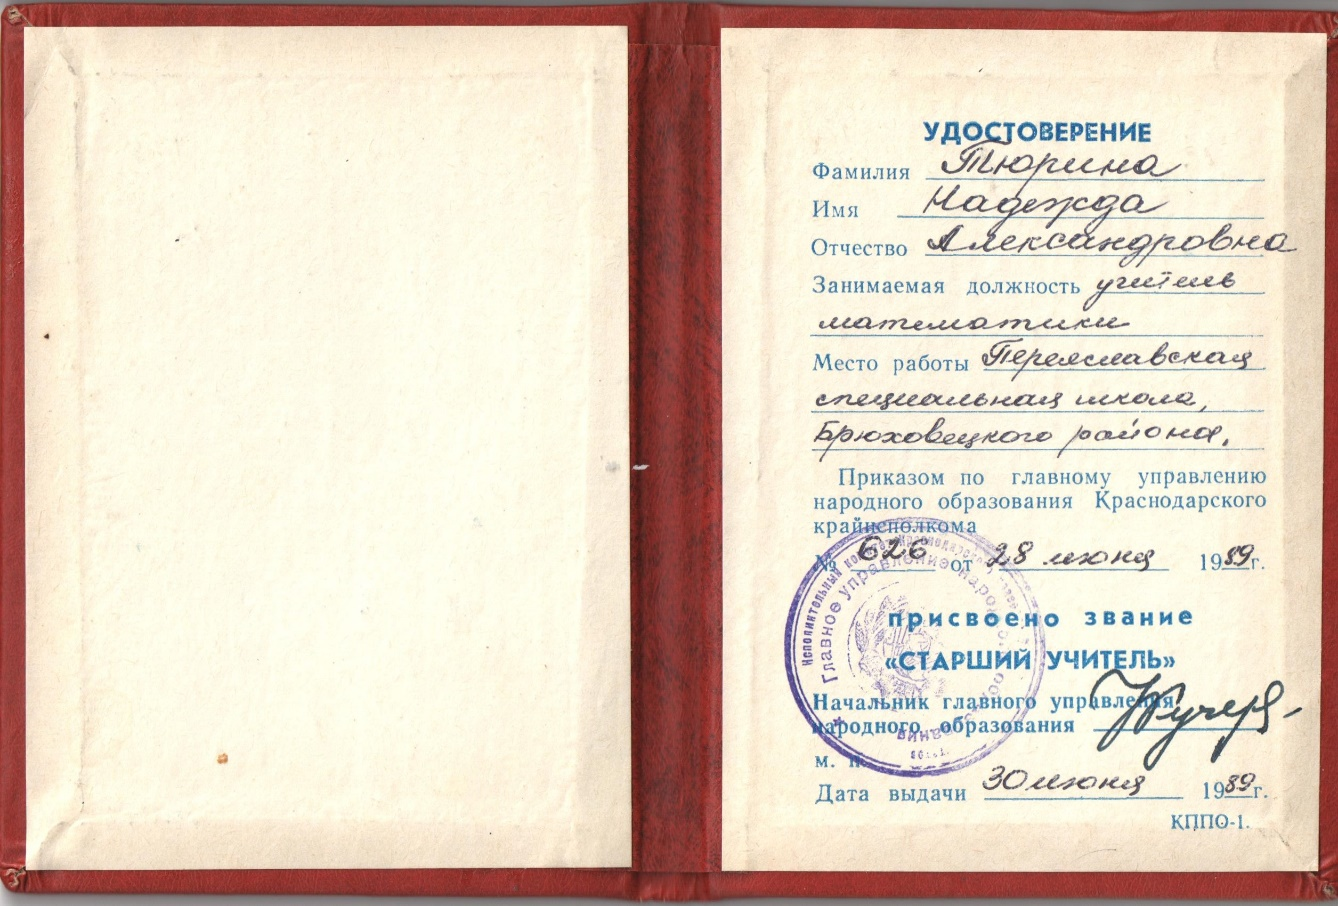 УДОСТОВЕРЕНИЕ
Фамилия Тюрина
Имя Надежда
Отчество Александровна
Занимаемая должность учитель
математики
Место работы Переяславская
специальная школа,
Брюховецкого района.
Приказом по главному управлению
народного образования Краснодарского
крайисполкома
№ 626 от 28 июня 1989 г.
присвоено звание
«СТАРШИЙ УЧИТЕЛЬ»
Начальник главного управления
народного образования
м. п.
Дата выдачи 30 июня 1989 г.
КППО-1.
Исполнительный комитет Краснодарского
Главное управление народного образования